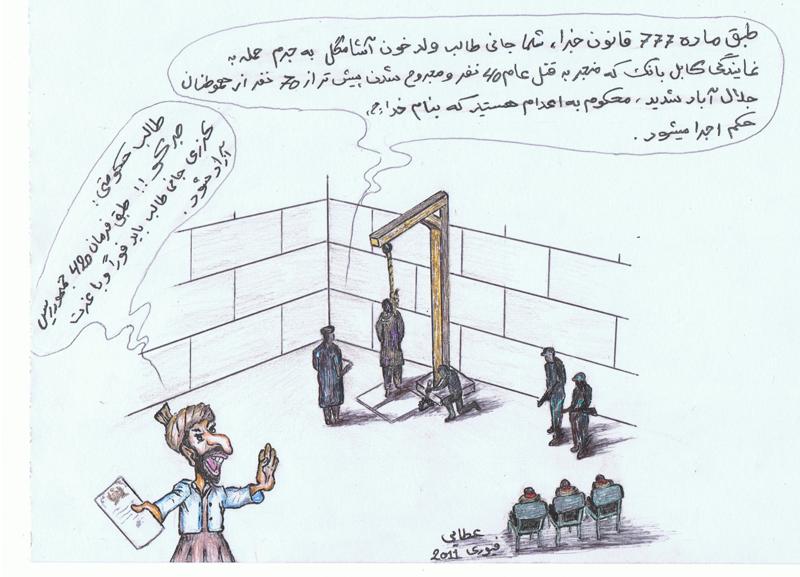 طبق ماده 777 قانون جزا، شما جانی طالب ولد خون آشامگل به جرم حمله به
نمایندگی کابل بانک که منجر به قتل عام 40 نفر و مجروح شدن بیش تر از 70 نفر از هموطنان
جلال آباد شدید، محکوم به اعدام هستید که بنام خدا (ج)
حکم اجرا میشود.
طالب حکومتی:
صبر کو!! طبق فرمان 420 جمهور رییس
کرزی جانی طالب باید فوراً و با عزت
آزاد شود.
عطایی
فبوری 2011